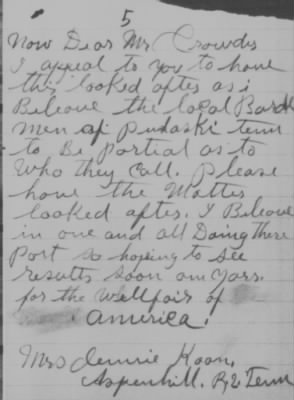 5
Now Dear Mr Crowder
I appeal to you to have
this looked after as i
Beleave the local Bord
men of Pulaski tenn
to Be partial as to
Who they call. Please
have the Matter
looked after. I Beleave
in one and all Doing there
Port so hoping to see
results soon am Yors.
for the Wellfair of
America.
Mrs Jennie Koon,
Aspenhill. R2 Tenn